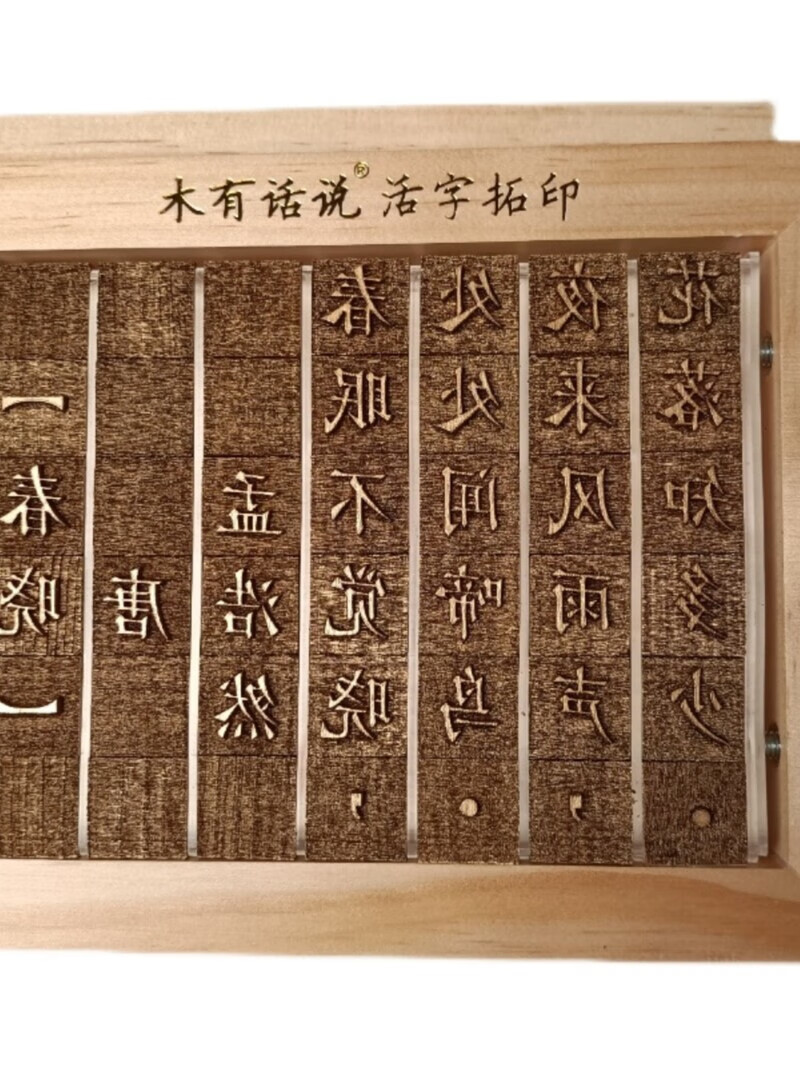 木有话说® 活字拓印
【春晓】
唐
孟浩然
春眠不觉晓，
处处闻啼鸟。
夜来风雨声，
花落知多少。